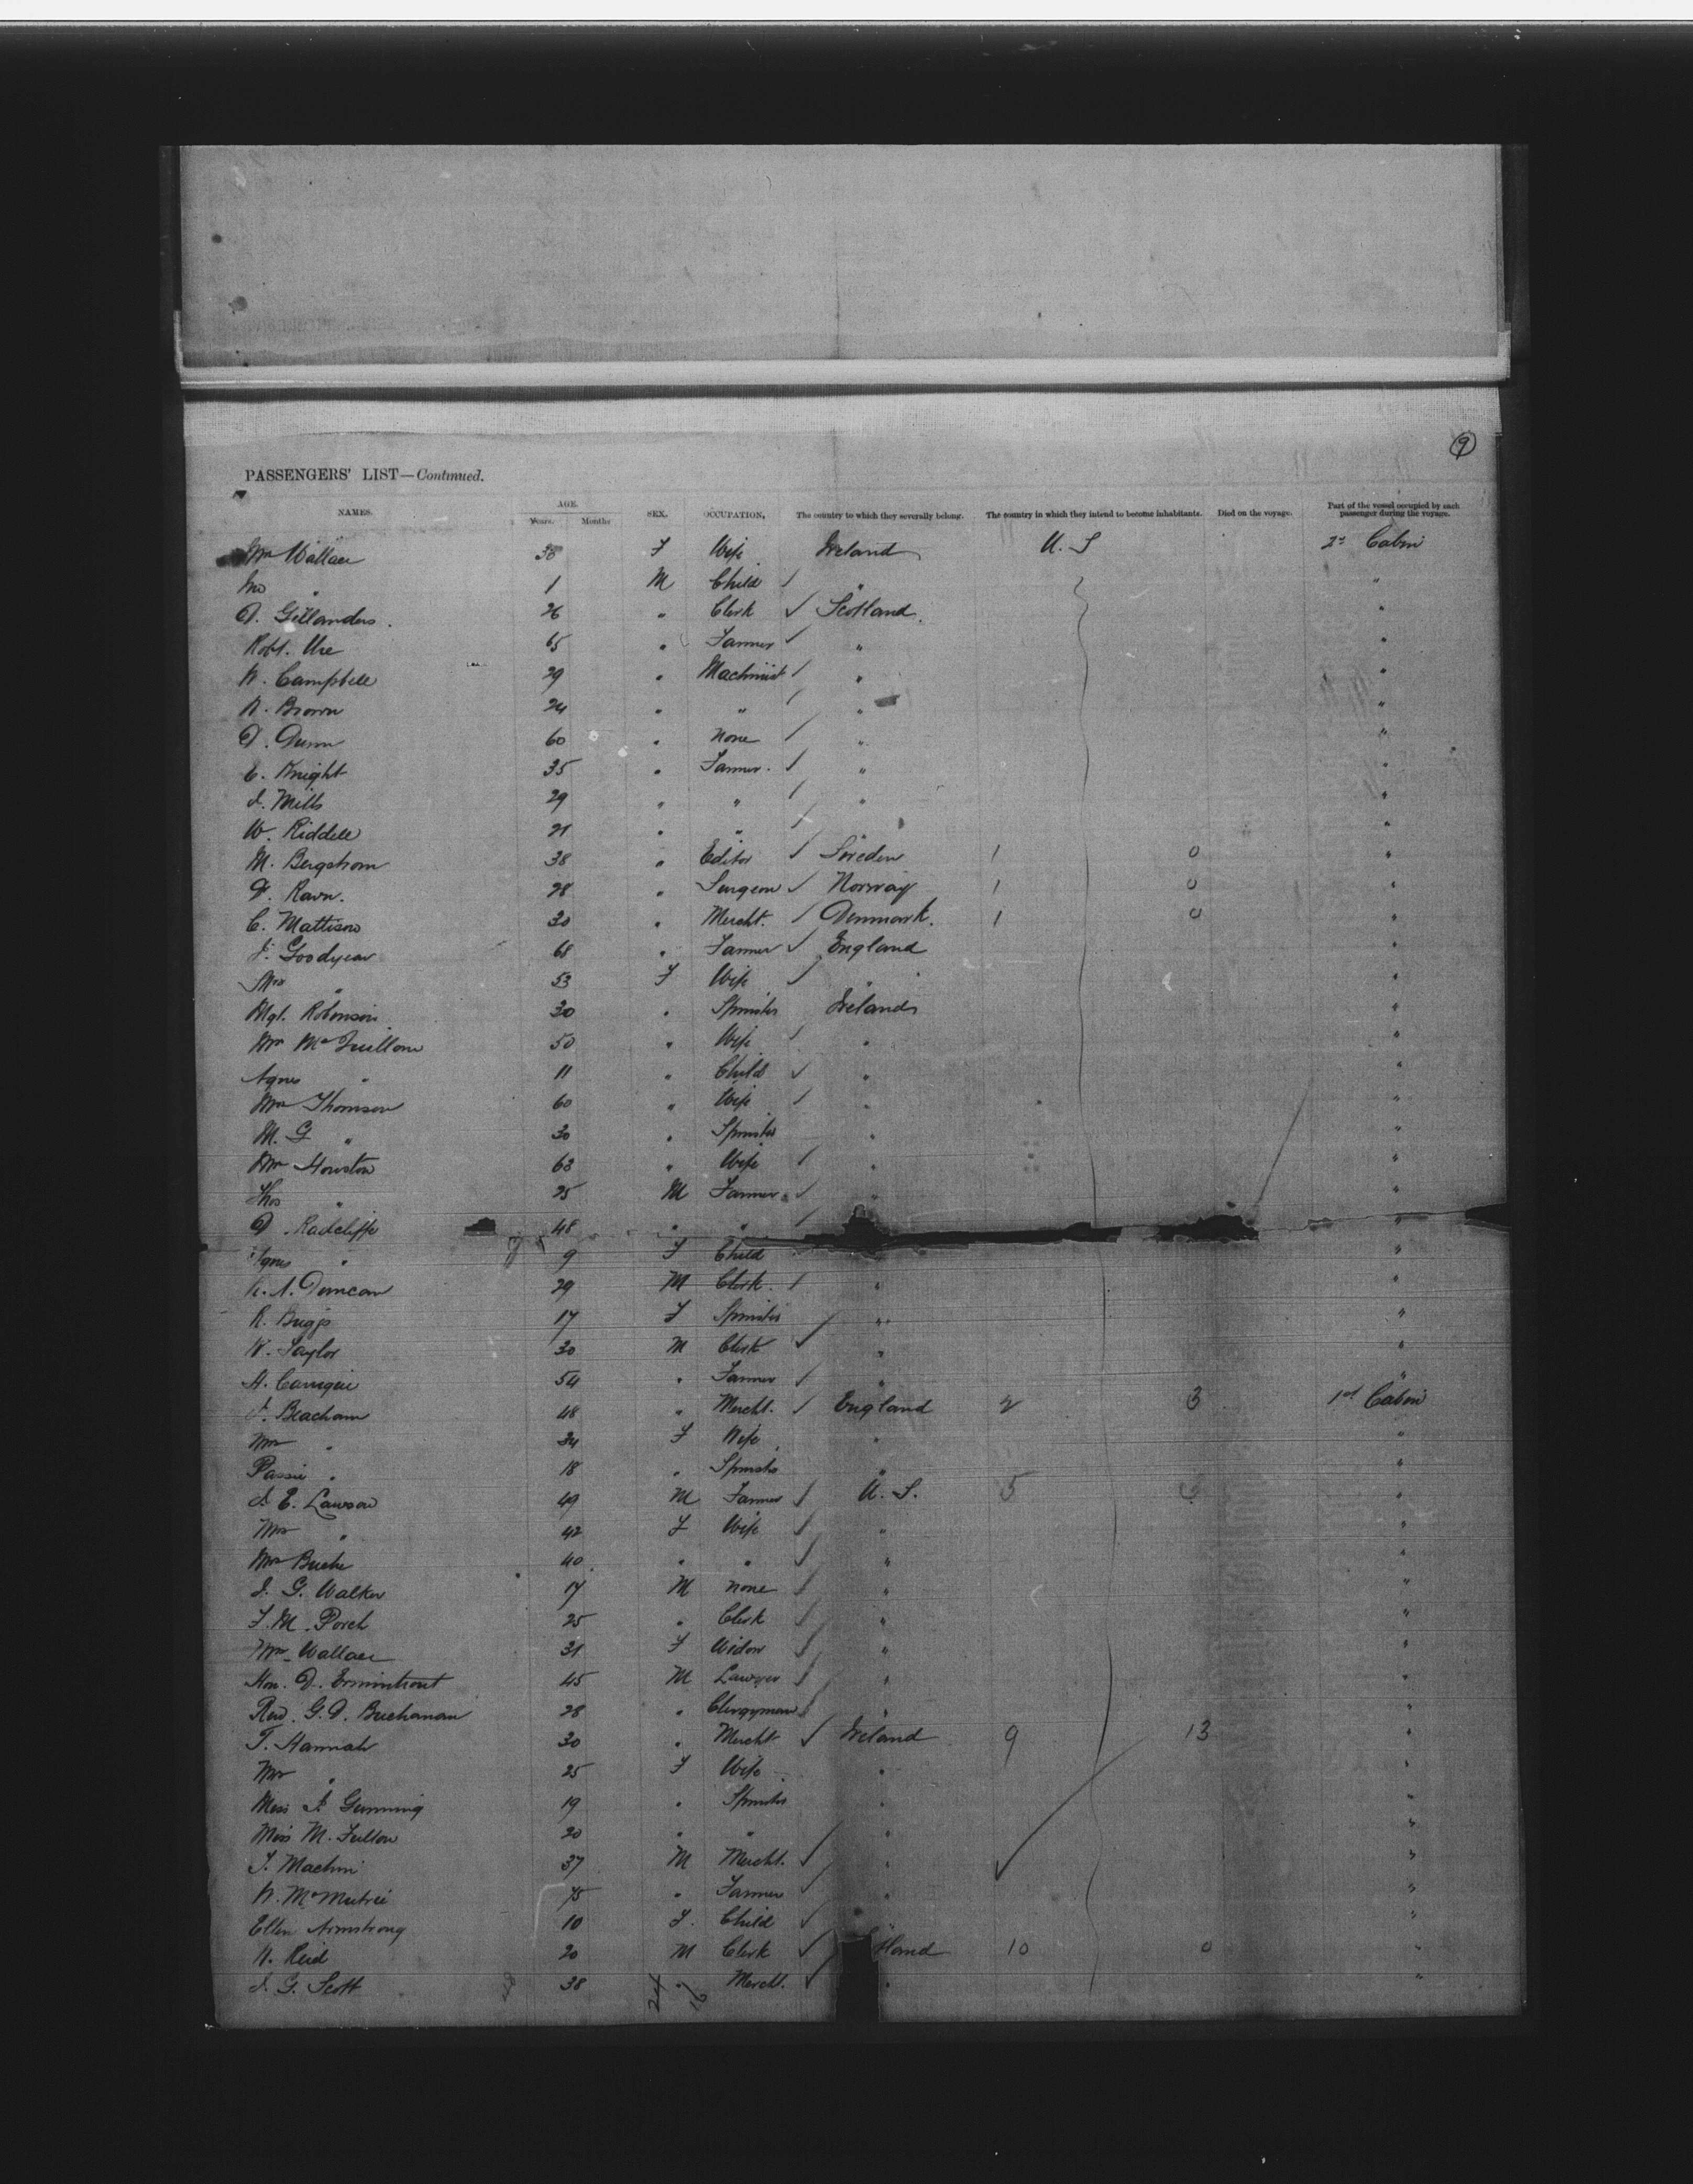 9
PASSENGERS' LIST—Continued.
NAMES. AGE. Years. Months SEX. OCCUPATION, The country to which they severally belong. The country in which they intend to become inhabitants. Died on the voyage. Part of the vessel occupied by each passenger during the voyage.
Mrs Wallace 38 F Wife Ireland U. S 2d Cabin
Jno " 1 M Child " "
D. Gillanders. 26 " Clerk Scotland "
Robt. Ure 65 " Farmer " "
W. Campbell 29 " Machinist " "
A. Brown 24 " " " "
D. Dunn 60 " None " "
E. Knight 35 " Farmer. " "
J. Mills 29 " " " "
W. Riddell 21 " " "
M. Bergstrom 38 " Editor Sweden 1 0 "
F. Ravn. 28 " Surgeon Norway 1 0 "
C. Mattison 30 " Mercht. Denmark. 1 0 "
J. Goodyear 68 " Farmer England "
Mrs " 53 F Wife " "
Mgt. Robinson 30 " Spinster Ireland "
Mrs McQuillan 50 " Wife " "
Agnes " 11 " Child " "
Mrs Thomson 60 " Wife " "
M. G " 30 " Spinster " "
Mrs Houston 62 " Wife " "
Thos " 25 M Farmer " "
D. Radcliffe 48 " " "
Agnes " 9 F Child "
A. Duncan 29 M Clerk. " "
R. Briggs 17 F Spinster " "
W. Taylor 30 M Clerk " "
A. 54 " Farmer " "
J. Beacham 48 " Mercht. England 2 3 1st Cabin
Mrs " 34 F Wife " "
" 18 " Spinster " "
J. E. Lawson 49 M Farmer U. S. 5 "
Mrs " 42 F Wife " "
Mrs 40 " " " "
J. G. Walker 17 M None " "
F. M. Porch 25 " Clerk " "
Mrs Wallace 31 F Widow " "
Hon. D. Ermentrout 45 M Lawyer " "
Rev. G. D. Buchanan 28 " Clergyman " "
T. Hannah 30 " Mercht Ireland 9 13 "
Mrs " 25 F Wife " "
Miss J. Gunning 19 " Spinster " "
Miss M. Fulton 20 " " " "
T. 37 M Mercht. " "
W. McMutrie 75 " Farmer " "
Ellen Armstrong 10 F. Child "
W. Reid 20 M Clerk tland 10 0 "
J. G. Scott 38 " Mercht. " "
24 16